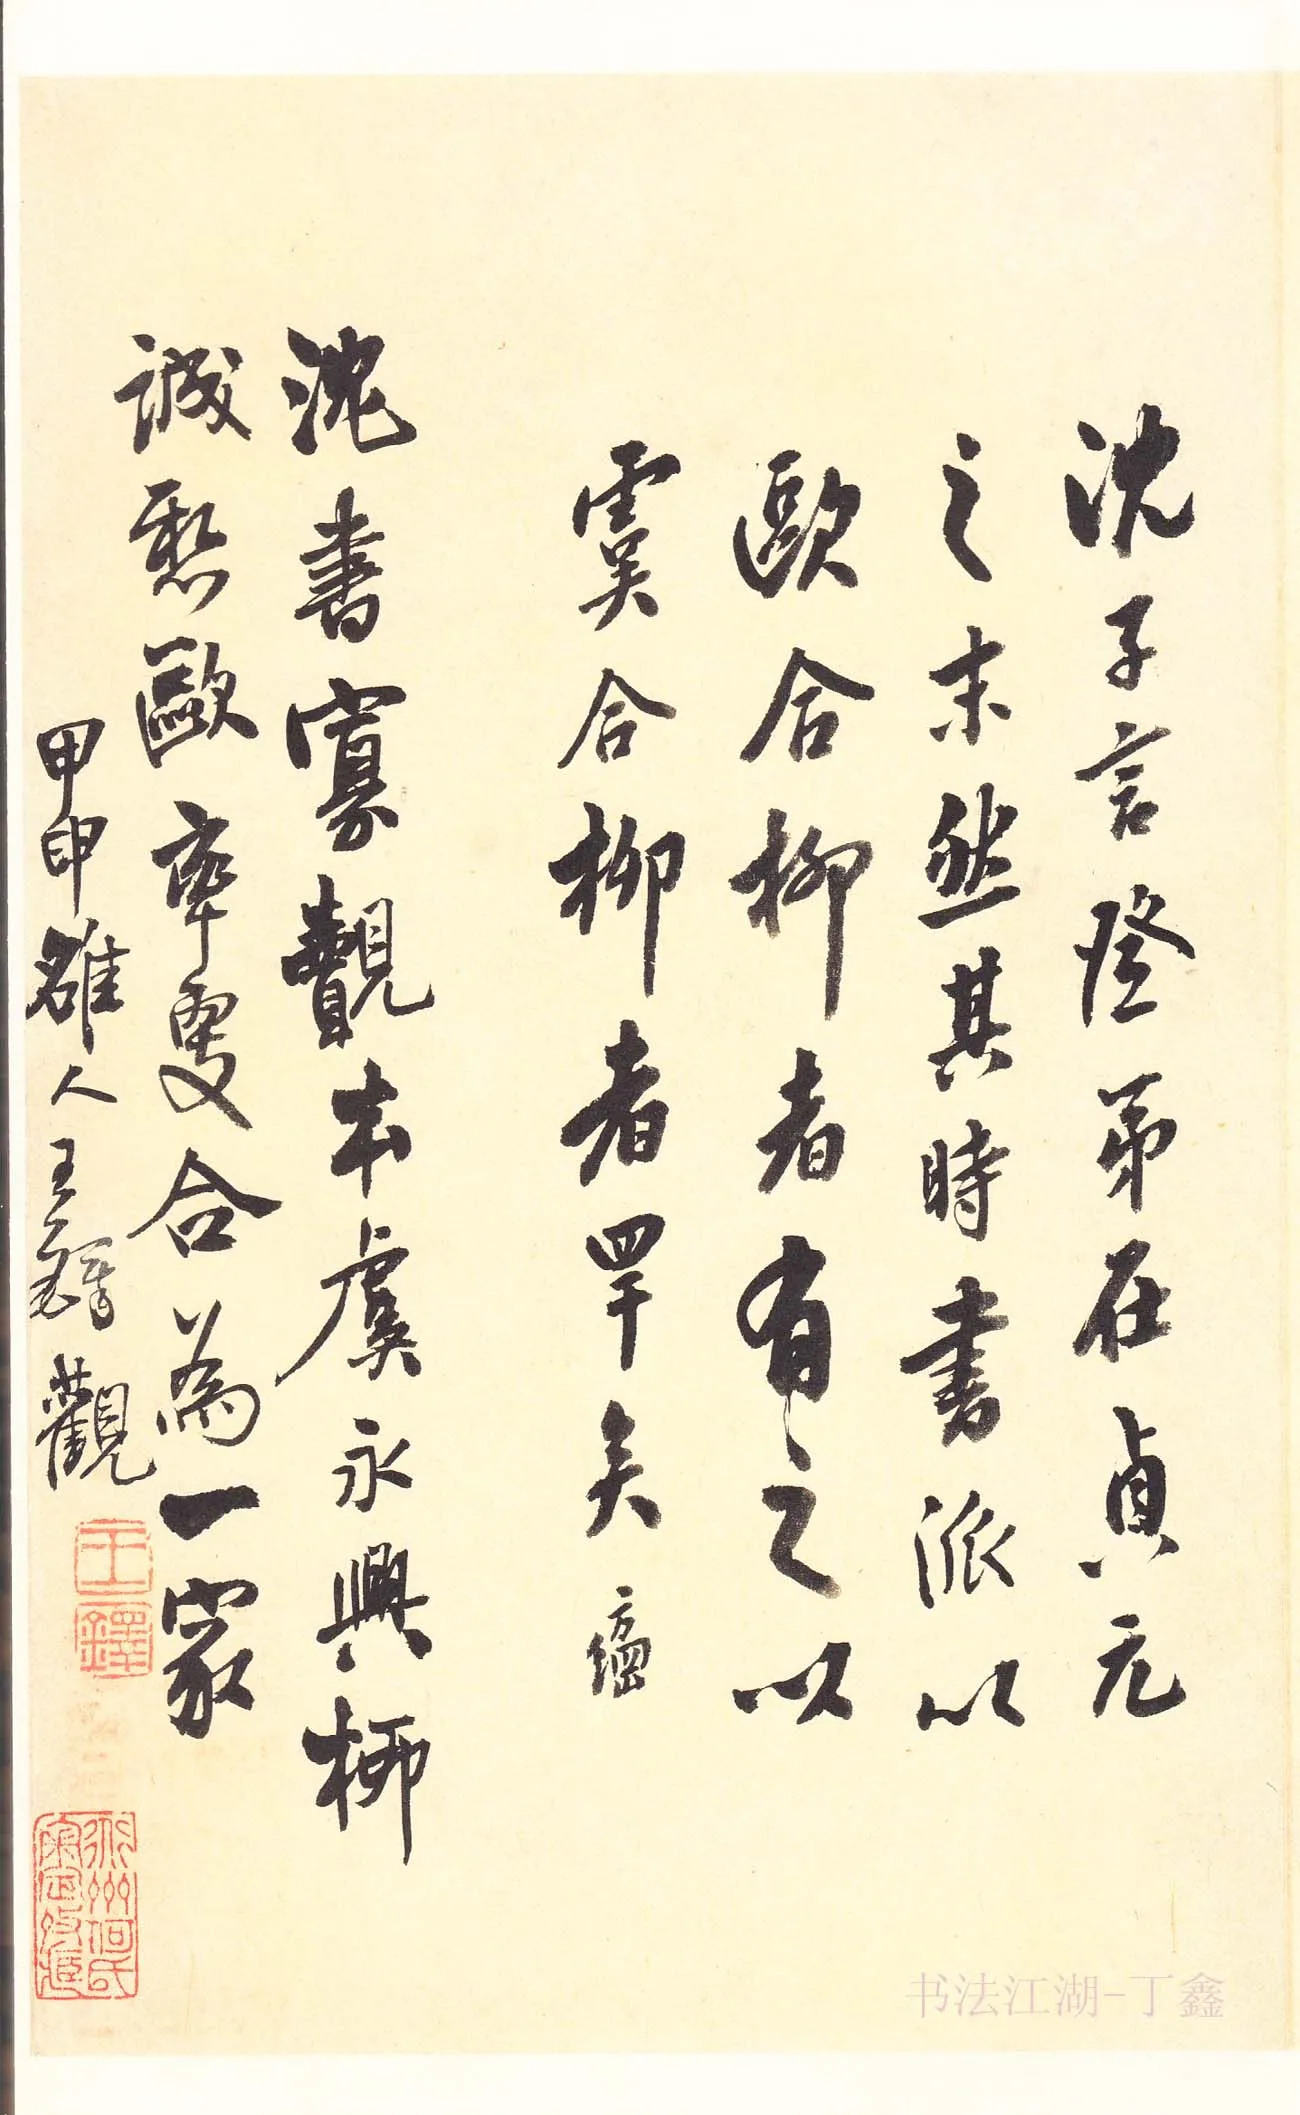 沈子言登第在貞元
之末然其時書派以
歐合柳者有之以
虞合柳者罕矣
沈書寡覯本虞永興柳
誠懸歐率更合為一家
甲申雒人王鐸觀
王鐸
書法江湖-丁鑫